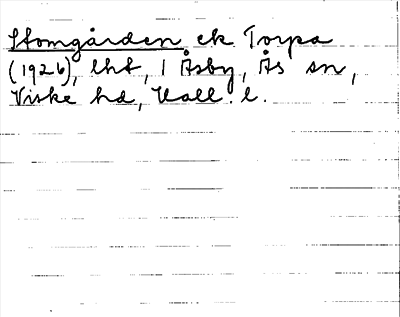 Stomgården ek Torpa
(1926), lht, 1 Åsby, Ås sn,
Viske hd, Hall. l.